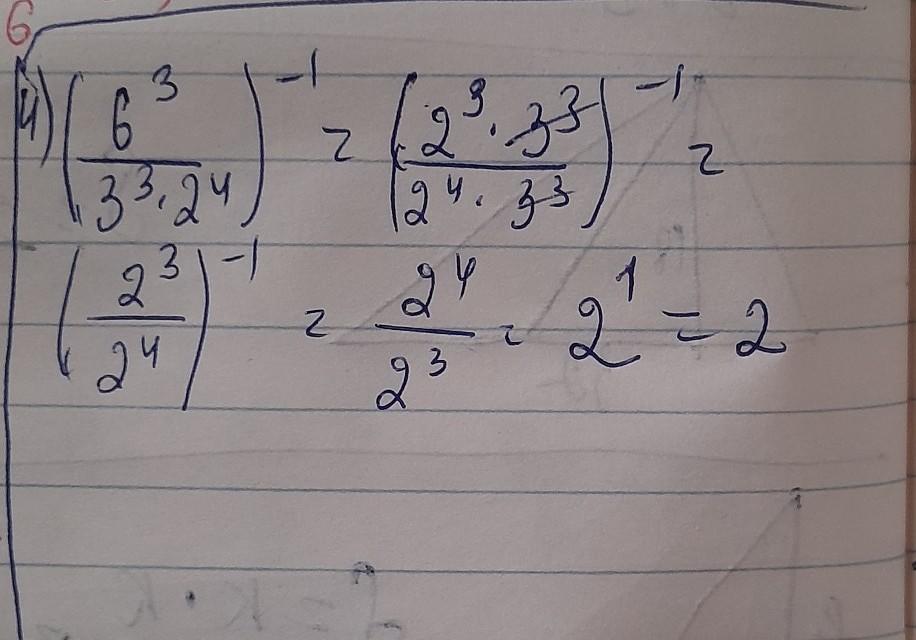 6
4) (6^3 / (3^3 · 2^4))^-1 = ((2^3 · 3^3) / (2^4 · 3^3))^-1 =
(2^3 / 2^4)^-1 = 2^4 / 2^3 = 2^1 = 2